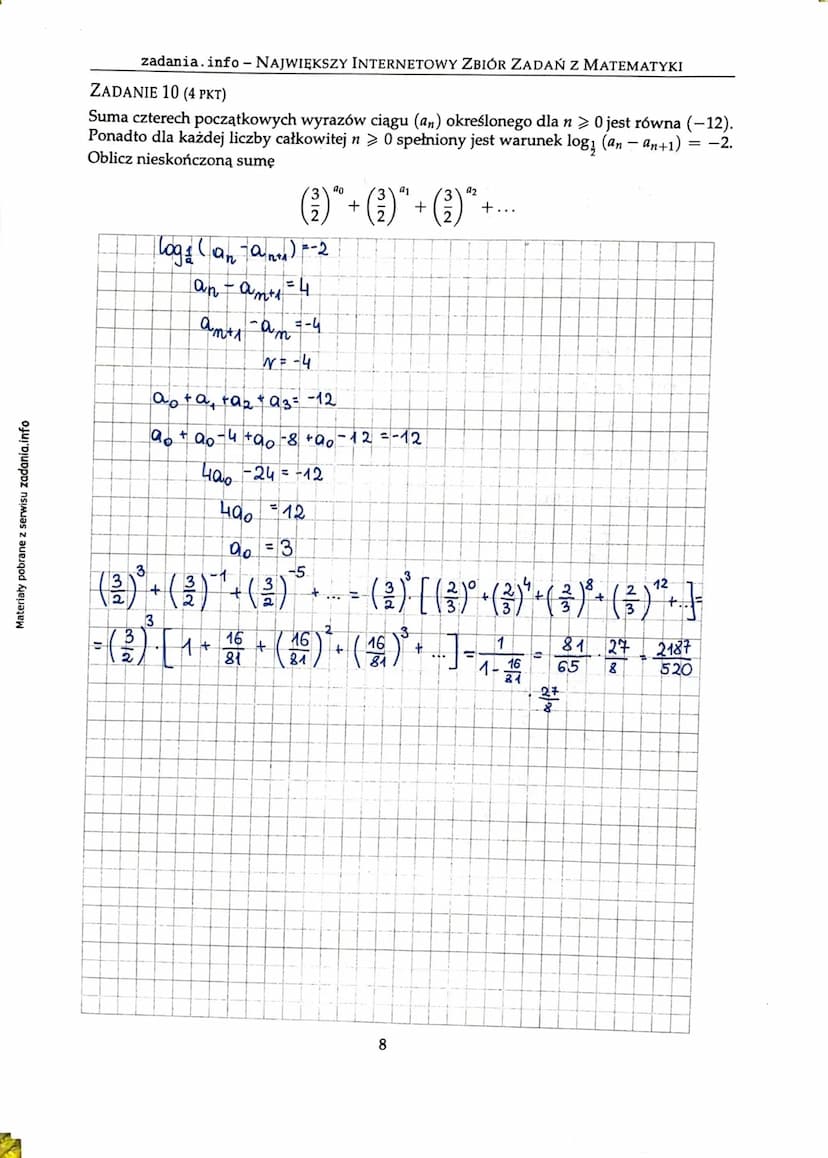 zadania.info – NAJWIĘKSZY INTERNETOWY ZBIÓR ZADAŃ Z MATEMATYKI
ZADANIE 10 (4 PKT)
Suma czterech początkowych wyrazów ciągu (aₙ) określonego dla n ⩾ 0 jest równa (−12).
Ponadto dla każdej liczby całkowitej n ⩾ 0 spełniony jest warunek log_{1/2} (aₙ − aₙ₊₁) = −2.
Oblicz nieskończoną sumę
(3/2)^{a₀} + (3/2)^{a₁} + (3/2)^{a₂} + ...
log_{1/2} (aₙ - aₙ₊₁) = -2
aₙ - aₙ₊₁ = 4
aₙ₊₁ - aₙ = -4
r = -4
a₀ + a₁ + a₂ + a₃ = -12
a₀ + a₀ - 4 + a₀ - 8 + a₀ - 12 = -12
4a₀ - 24 = -12
4a₀ = 12
a₀ = 3
(3/2)^3 + (3/2)^{-1} + (3/2)^{-5} + ... = (3/2)^3 · [(2/3)^0 + (2/3)^4 + (2/3)^8 + (2/3)^{12} + ...] =
= (3/2)^3 · [1 + 16/81 + (16/81)^2 + (16/81)^3 + ...] = 1/(1 - 16/81) · 27/8 = 81/65 · 27/8 = 2187/520
8
Materiały pobrane z serwisu zadania.info